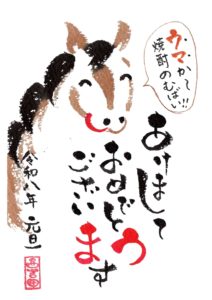 ウマかー
焼酎のむばい!!
あけまして
おめでとう
ございます
令和八年 元旦